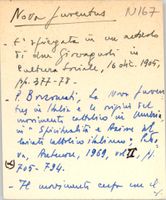 Nova Juventus N167
- E' spiegata in un articolo
di don Giovagnoli in
Cultura Sociale, 16 dic. 1905,
pp. 377-78.-
- P. Borzomati, La Nova Juven
tus in Italia e le origini del
movimento cattolico in Umbria
in - Spiritualità e Azione del
laicato cattolico italiano; Pado
va, Antenore, 1969, vol II, p.
705-734.
- Il movimento